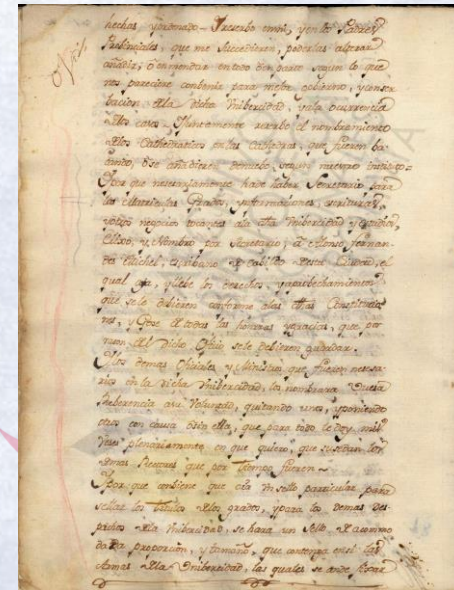 hechas, y ordenado = Y reserbo en mi, y en los Padres
Probinçiales, que me suçedieren, poderlas alterar
añadir, o enmendar en todo o en parte segun lo que
nos pareciere conbenir para mejor gobierno, y conser
bacion de la dicha Unibercidad, y a la ocurrencia
de los casos = Y juntamente reserbo el nombramiento
de los Cathedraticos en las Cathedras, que fueren ba
cando, o se añadieren denuebo, segun nuestro instituto =
Y por que necesariamente ha de haber Secretario para
las Matriculas, Grados, informaciones, escrituras,
y otros negocios tocantes a la dha Unibercidad y estudios,
Elixo, y Nombro por Secretario, a Alonso Fernan
dez Michel, escribano de Cabildo de esta Ciudad, el
qual aya, y llebe los derechos, y aprobechamientos
que se le debieren conforme a las dhas Constitucio
nes, y Gose de todas las honrras y gracias, que por
razon del Dicho Oficio se le debieren guardar.
Y los demas Oficiales, y Ministros que fueren necesa
rios en la dicha Unibercidad, los nombrara Vuestra
Reberencia a su Voluntad, quitando unos, y poniendo
otros con causa o sin ella, que para todo le doy mis
veces plenariamente, en que quiero, que sucedan los
demas Rectores que por tiempo fueren =
Y por que conbiene que aya un sello particular para
sellar los titulos de los grados, y para los demas des
pachos de la Unibercidad, se hara un Sello de acomo
dada proporcion, y tamaño, que contenga en si las
Armas de la Unibercidad, las quales se an de fixar